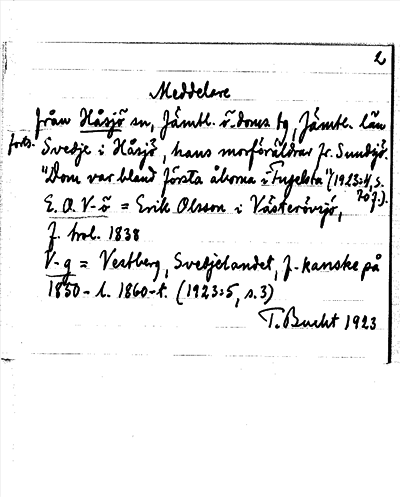 2
Meddelare
från Håsjö sn, Jämtl. ö. doms tg, Jämtl. län
forts. Svedje i Håsjö, hans morföräldrar fr. Sundsjö.
"Dom var bland första åborna i Fugelsta" (1923:4, s.
70 f.).
E. O. V-ö = Erik Olsson i Västerövsjö,
f. trol. 1838
V-g = Vestberg, Svedjelandet, f. kanske på
1850- l. 1860-t. (1923:5, s. 3)
T. Bucht 1923